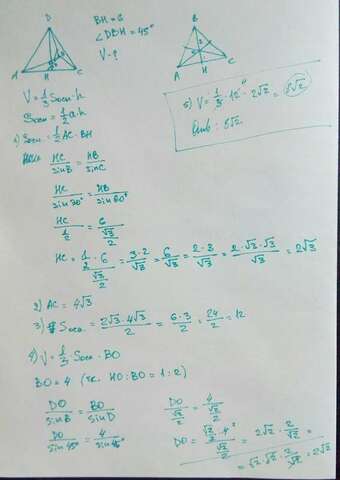 D
A
H
C
BH = 6
∠DBH = 45°
V - ?
B
A
H
C
V = 1/3 Sосн · h
Sосн = 1/2 a · h
1) Sосн = 1/2 AC · BH
HC/sinB = HB/sinC
HC/sin30° = HB/sin60°
HC/(1/2) = 6/(√3/2)
HC = (1/2 · 6)/(√3/2) = 3·2/√3 = 6/√3 = 2·3/√3 = 2·√3·√3/√3 = 2√3
2) AC = 4√3
3) Sосн = 2√3 · 4√3/2 = 6·3/2 = 24/2 = 12
4) V = 1/3 · Sосн · BO
BO = 4 (т.к. HO:BO = 1:2)
DO/sinB = BO/sinD
DO/sin45° = 4/sin45°
DO/(√2/2) = 4/(√2/2)
DO = (√2/2 · 4)/(√2/2) = 2√2 · 2/√2 =
= √2·√2 · 2/√2 = 2√2
5) V = 1/3 · 12 · 2√2 = 8√2
Отв: 8√2